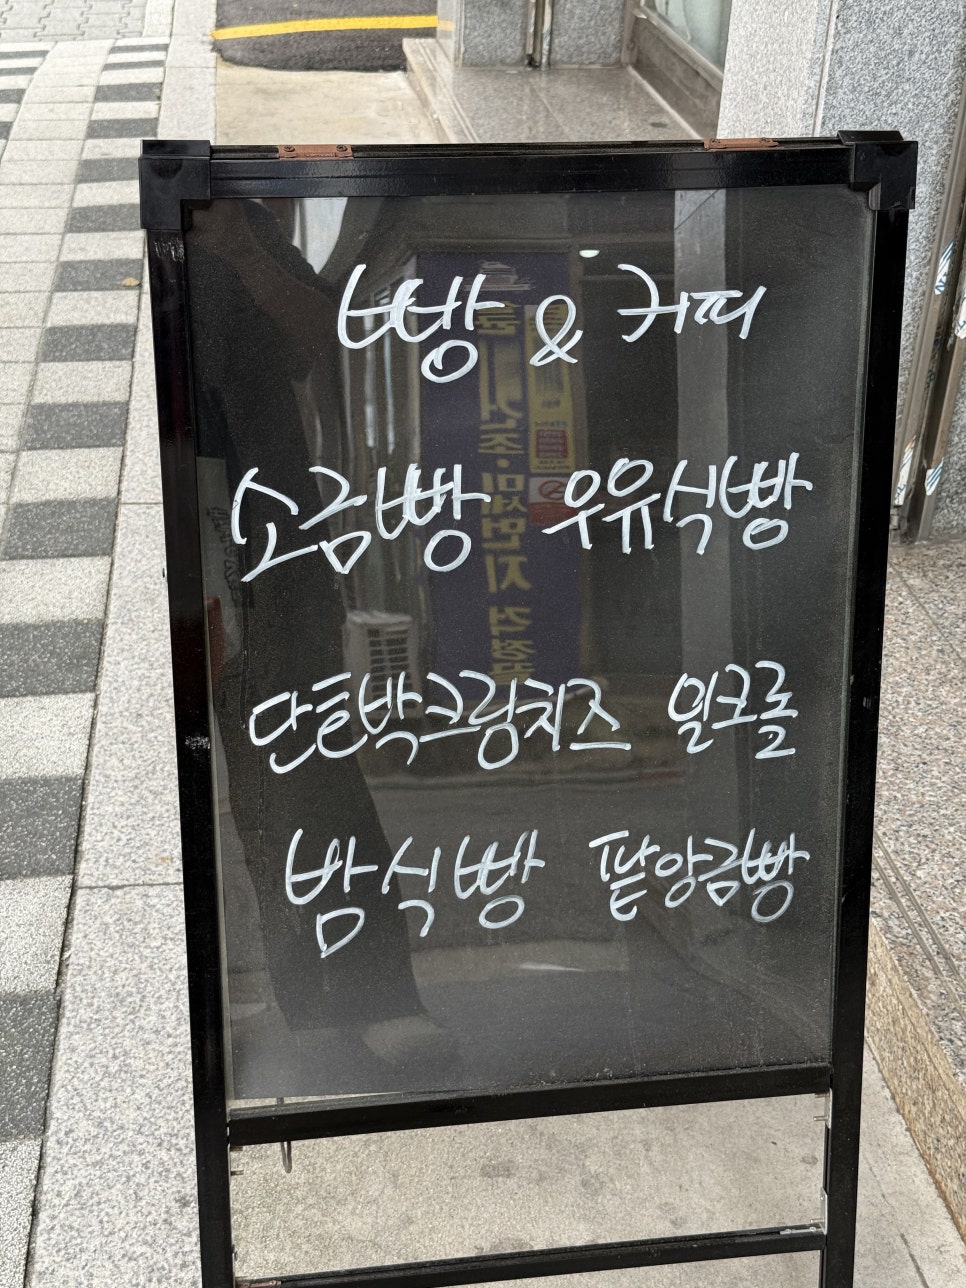 빵 & 커피
소금빵 우유식빵
단호박크림치즈 밀크롤
밤식빵 팥앙금빵